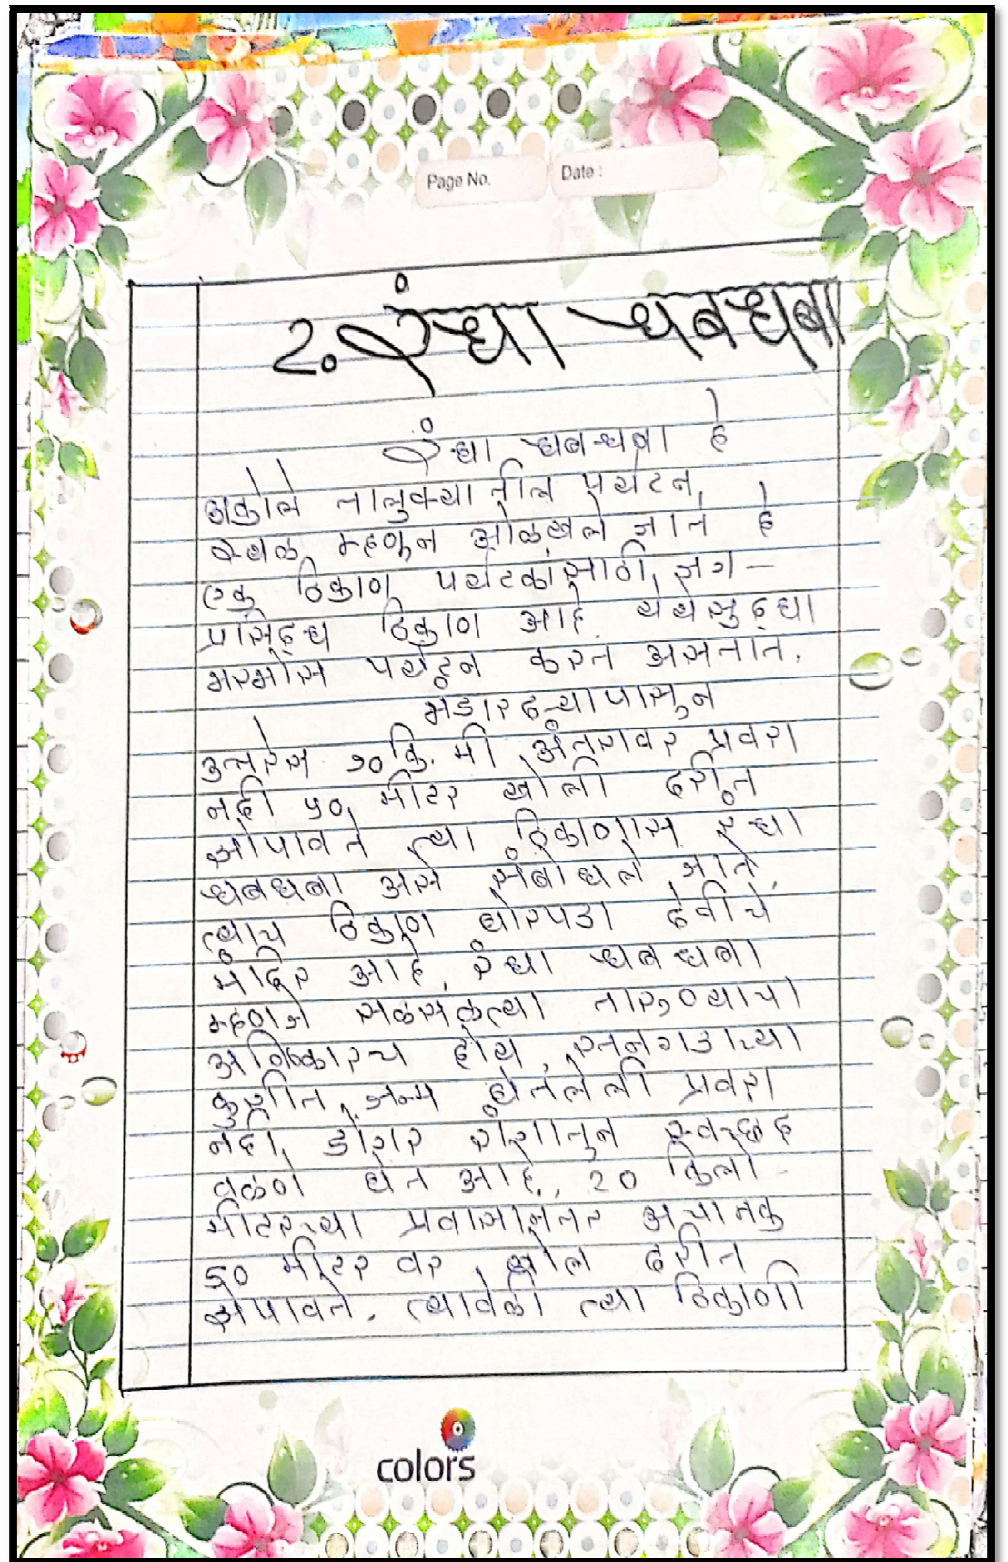 Page No.
Date :
2. रंधा धबधबा
रंधा धबधबा हे
अकोले तालुक्यातील पर्यटन
स्थळ म्हणून ओळखले जाते हे
एक ठिकाण पर्यटकांसाठी जग-
प्रसिद्ध ठिकाण आहे येथेसुद्धा
भरभोस पर्यटन करत असतात.
भंडारदऱ्यापासून
उत्तरेस १० कि. मी. अंतरावर प्रवरा
नदी ५० मीटर खोली दरीत
झेपावते त्या ठिकाणास रंधा
धबधबा असे संबोधले जाते.
त्याच ठिकाण घोरपडा देवीचे
मंदिर आहे. रंधा धबधबा
म्हणजे सळसळत्या तारुण्याचा
अविष्कारच होय. रतनगडाच्या
कुशीत जन्म घेतलेली प्रवरा
नदी डोंगर रांगातुन स्वच्छंद
वळणे घेत आहे., 20 किलो-
मीटरच्या प्रवासानंतर अचानक
50 मीटर वर खोल दरीत
झेपावते. त्यावेळी त्या ठिकाणी
colors